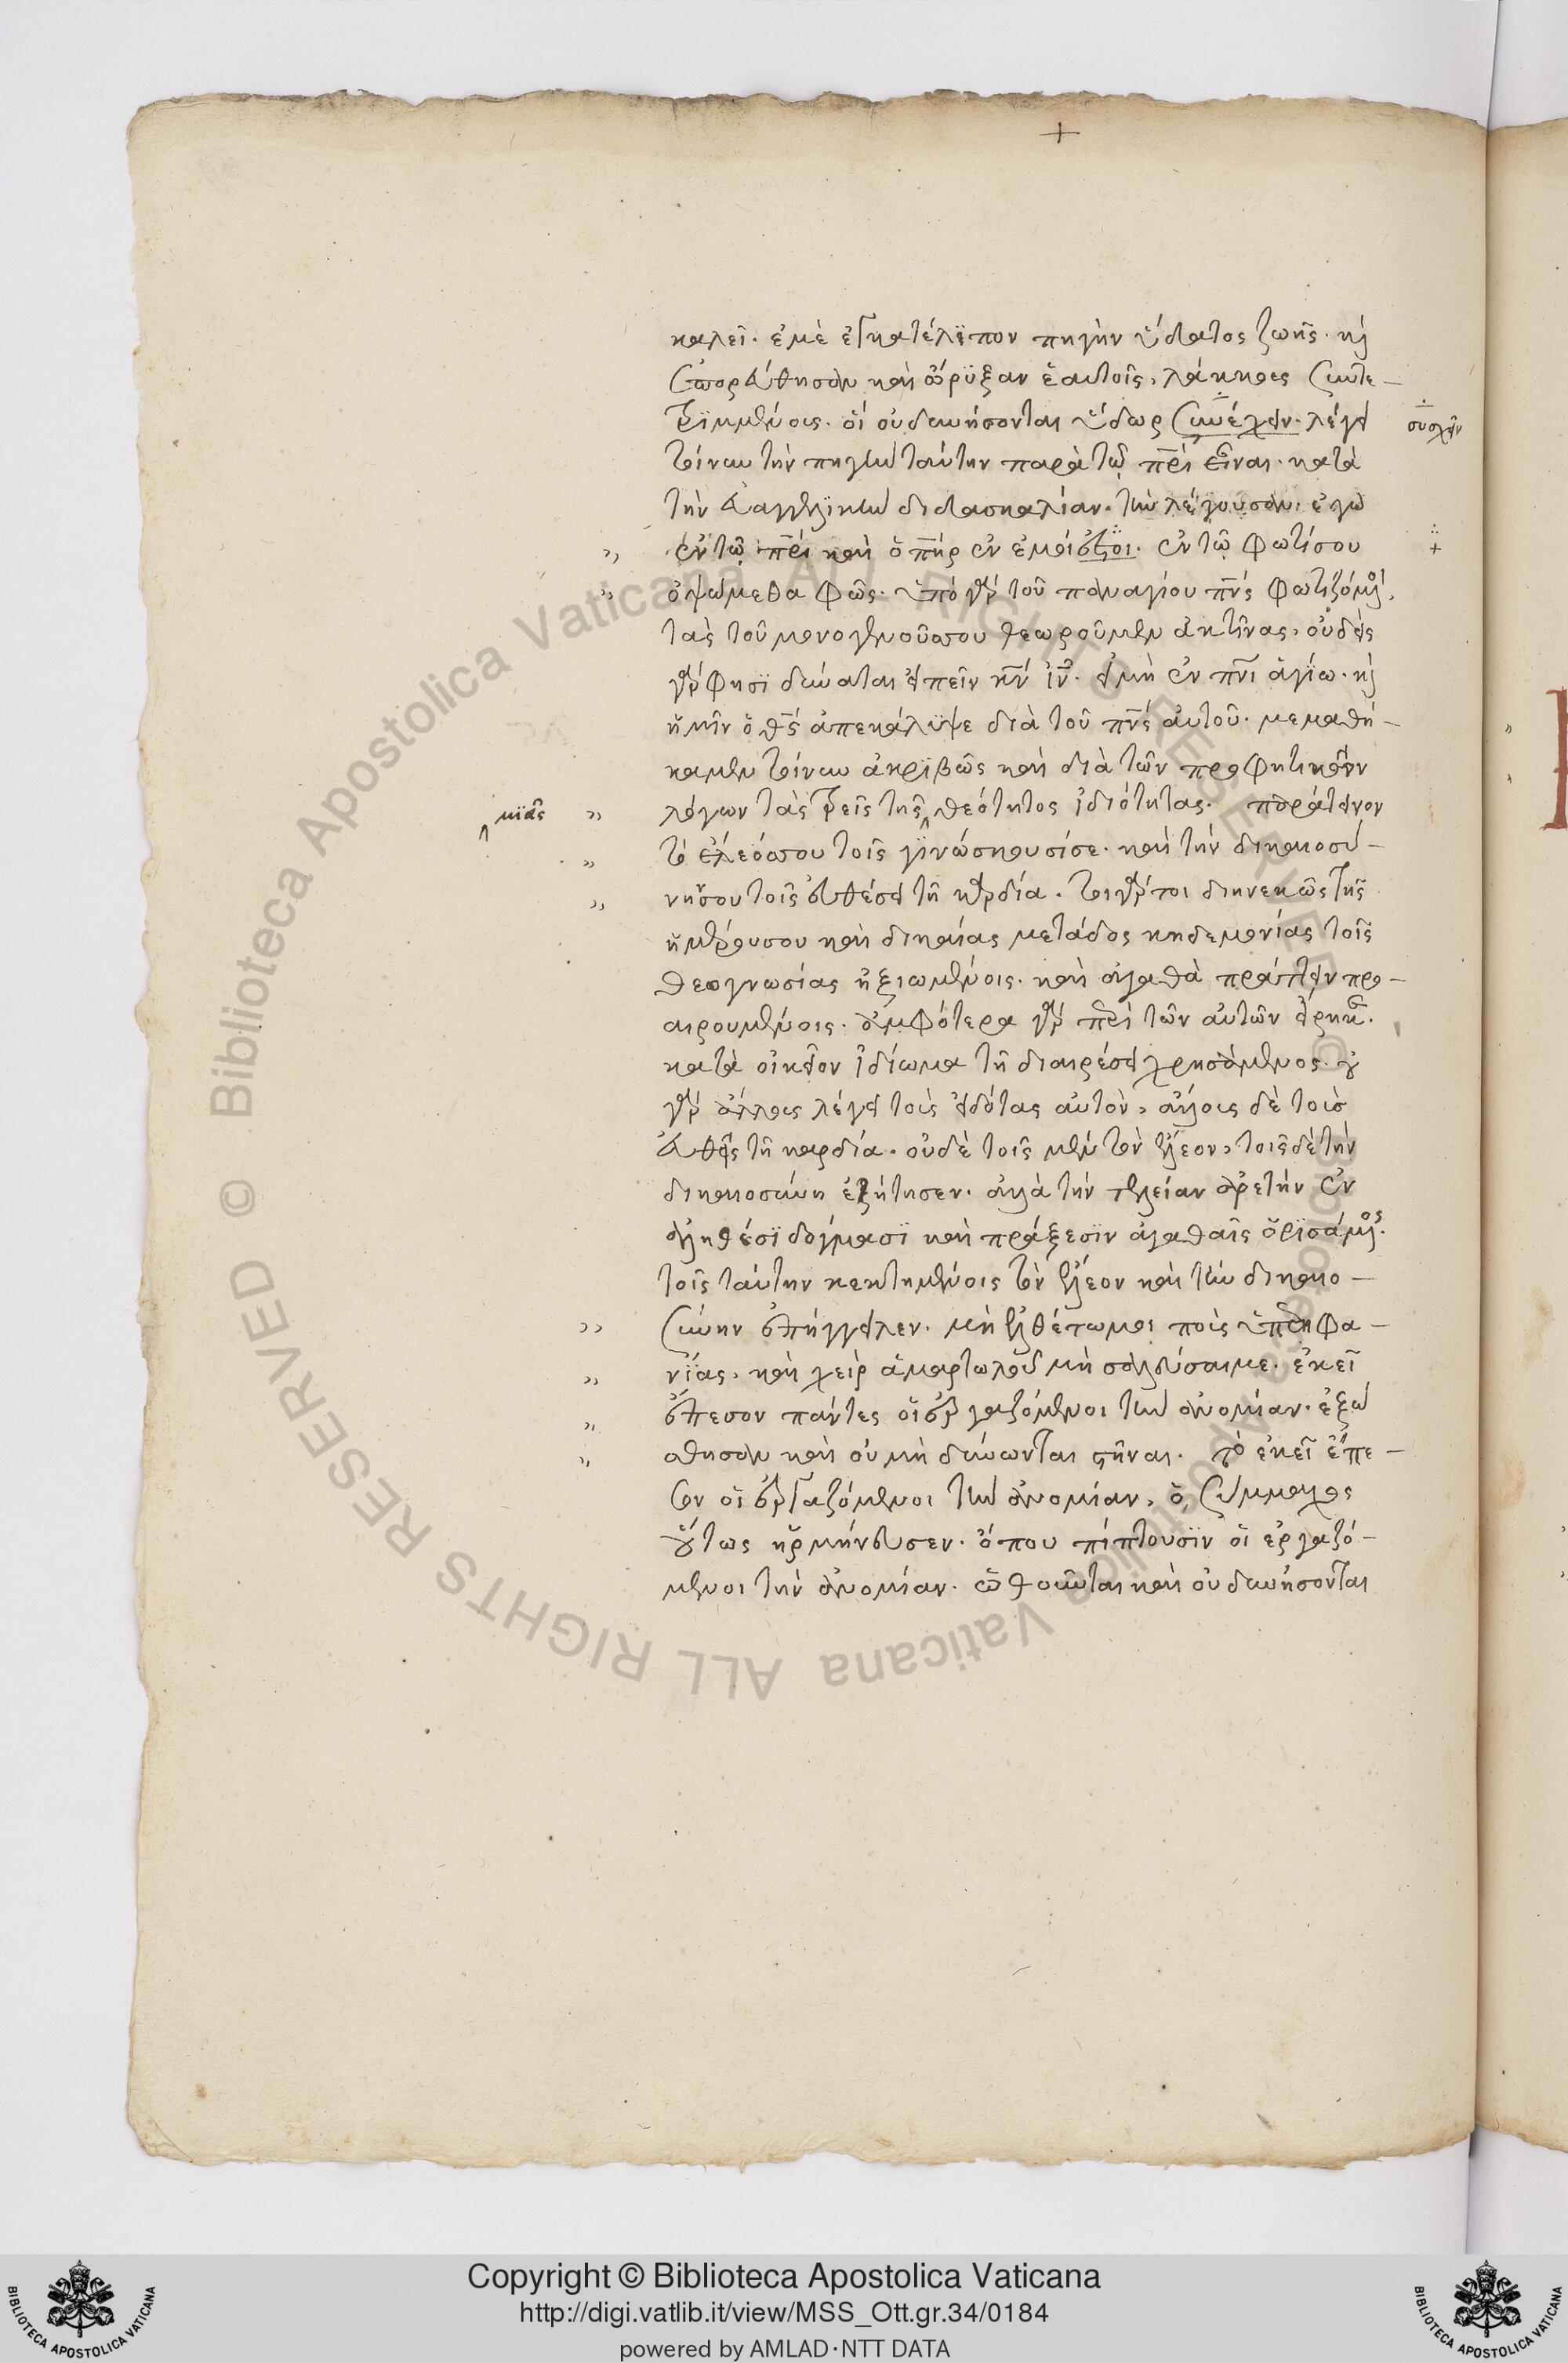 +
καλεῖ· ἐμὲ ἐγκατέλιπον πηγὴν ὕδατος ζωῆς· κ(αὶ)
καὶ ὤρυξαν ἑαυτοῖς, λάκκους συντε-
τριμμένους· οἳ οὐ δυνήσονται ὕδωρ συνέχειν· λέγει
συσχεῖν
τοίνυν τὴν πηγὴν ταύτην παρὰ τῷ πρι εἶναι· κατὰ
τὴν εὐαγγελικὴν διδασκαλίαν· τὴν λέγουσαν· ἐγὼ
ἐν τῷ πρι καὶ ὁ πηρ ἐν ἐμοί ἐστι· ἐν τῷ φωτί σου
ὀψώμεθα φῶς· ὑπὸ γὰρ τοῦ παναγίου πνς φωτιζόμενοι,
τὰς τοῦ μονογενοῦς σου θεωροῦμεν ἀκτῖνας, οὐδεὶς
γάρ φησι δύναται εἰπεῖν κν ιν· εἰ μὴ ἐν πνι ἁγίω· κ(αὶ)
ἡμῖν ὁ θς ἀπεκάλυψε διὰ τοῦ πνς αὐτοῦ· μεμαθή-
καμεν τοίνυν ἀκριβῶς καὶ διὰ τῶν προφητικῶν
λόγων τὰς τρεῖς τῆς θεότητος ἰδιότητας· παράτεινον
μιᾶς
τὸ ἔλεός σου τοῖς γινώσκουσί σε· καὶ τὴν δικαιοσύ-
νην σου τοῖς εὐθέσι τῆ καρδία· τοιγάρτοι διηνεκῶς τῆς
ἡμέρου σου καὶ δικαίας μετάδος κηδεμονίας τοῖς
θεογνωσίας ἠξιωμένοις· καὶ ἀγαθὰ πράττειν προ-
αιρουμένοις· ἀμφότερα γὰρ περὶ τῶν αὐτῶν εἴρηκε·
κατὰ οἰκεῖον ἰδίωμα τῆ διαιρέσει χρησάμενος· οὐ
γὰρ ἄλλους λέγει τοὺς εἰδότας αὐτὸν, ἄλλους δὲ τοὺς
εὐθεῖς τῆ καρδία· οὐδὲ τοῖς μὲν τὸν ἔλεον, τοῖς δὲ τὴν
δικαιοσύνη ἐζήτησεν· ἀλλὰ τὴν τελείαν ἀρετὴν ἐν
ἀληθέσι δόγμασι καὶ πράξεσιν ἀγαθαῖς ὁρισάμενος·
τοῖς ταύτην κεκτημένοις τὸν ἔλεον καὶ τὴν δικαιο-
σύνην ἐπήγγειλεν· μὴ ἐλθέτω μοι ποὺς ὑπερηφα-
νίας, καὶ χεὶρ ἁμαρτωλοῦ μὴ σαλεύσαι με· ἐκεῖ
ἔπεσον πάντες οἱ ἐργαζόμενοι τὴν ἀνομίαν· ἐξώ
σθησαν καὶ οὐ μὴ δύνωνται στῆναι· τὸ ἐκεῖ ἔπε-
σον οἱ ἐργαζόμενοι τὴν ἀνομίαν, ὁ Σύμμαχος
οὕτως ἡρμήνευσεν· ὅπου πίπτουσιν οἱ ἐργαζό-
μενοι τὴν ἀνομίαν· ὠθοῦνται καὶ οὐ δυνήσονται
Copyright © Biblioteca Apostolica Vaticana
http://digi.vatlib.it/view/MSS_Ott.gr.34/0184
powered by AMLAD·NTT DATA